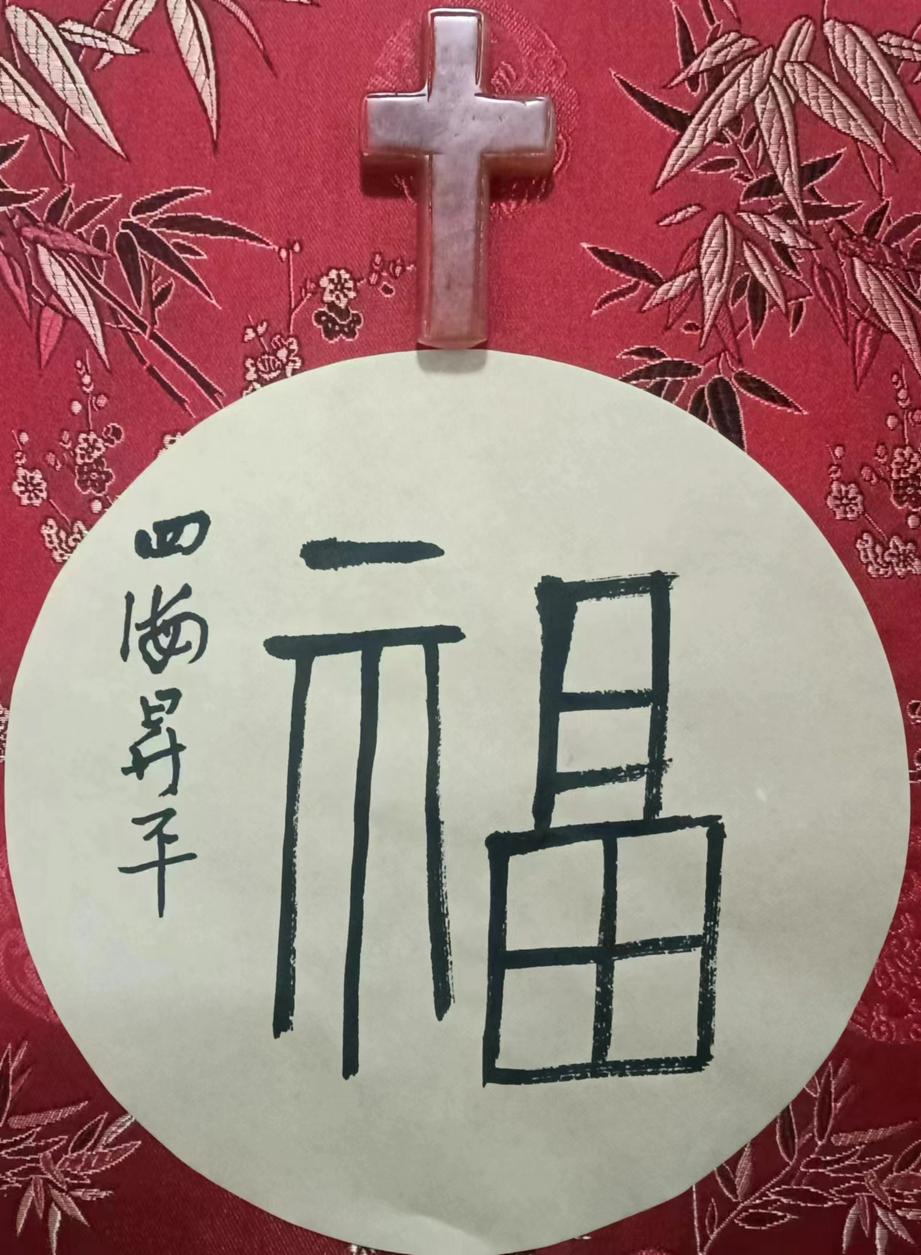 福
四海昇平